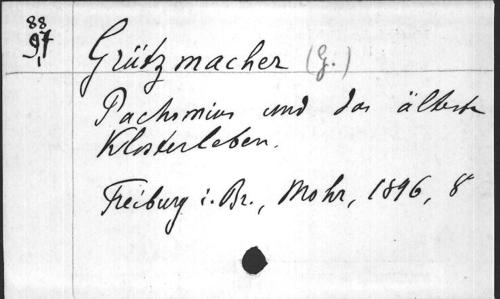 88
97
Grützmacher (G.)
Pachomius und das älteste
Klosterleben.
Freiburg i. Br., Mohr, 1896, 8°